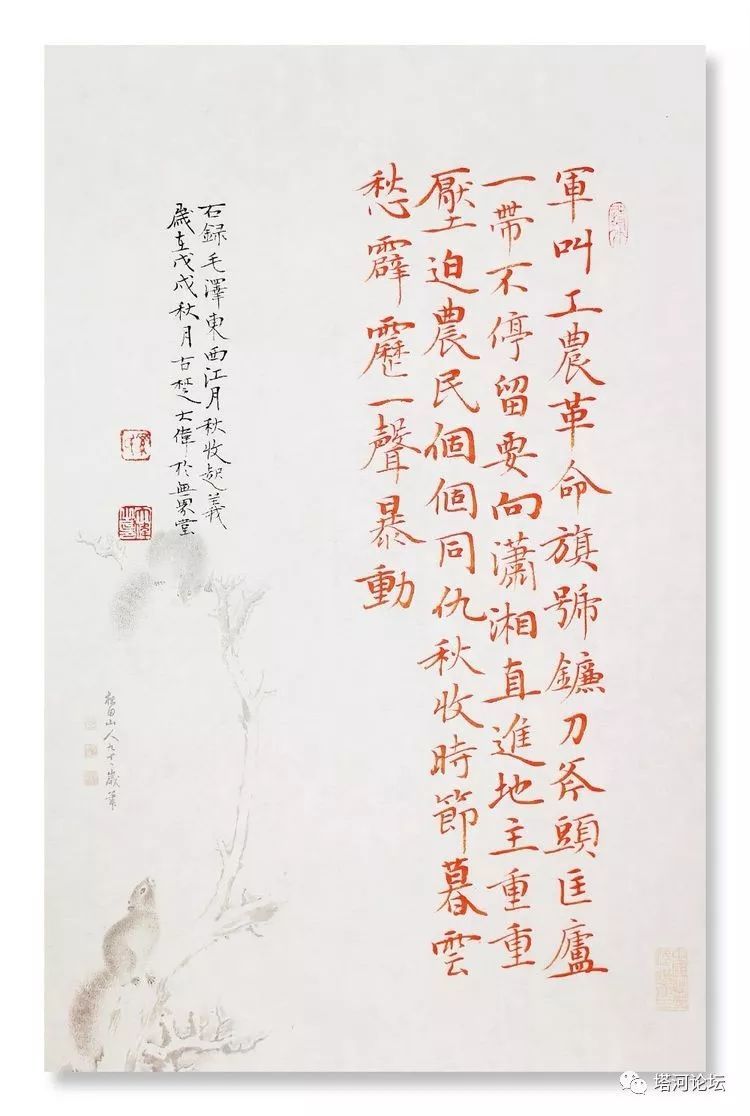 軍叫工農革命旗號鐮刀斧頭匡廬
一帶不停留要向瀟湘直進地主重重
壓迫農民個個同仇秋收時節暮雲
愁霹靂一聲暴動
右録毛澤東西江月秋收起義
歲在戊戌秋月古楚大偉於無界堂
山人九十二歲筆
塔河论坛